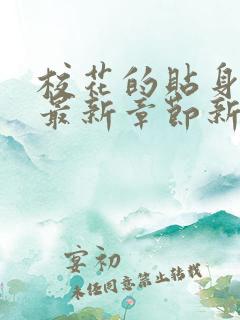 校花的贴身
最新章节新
宴初
未经同意禁止转载